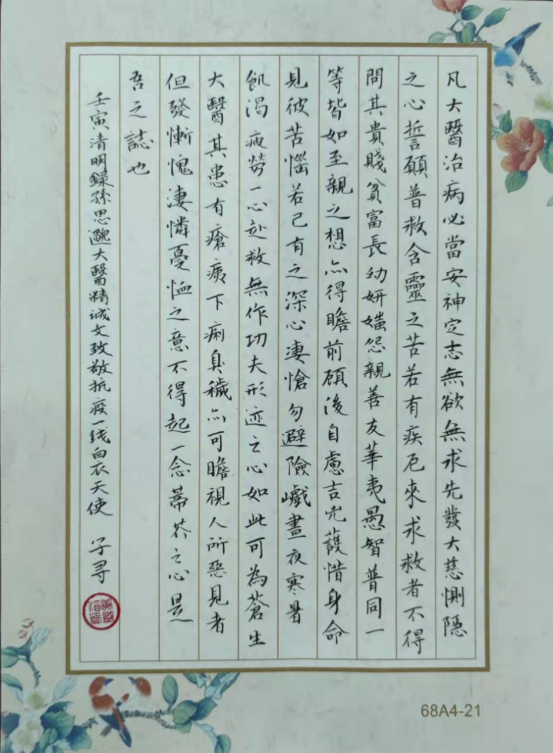 凡大醫治病必當安神定志無欲無求先發大慈惻隱
之心誓願普救含靈之苦若有疾厄來求救者不得
問其貴賤貧富長幼妍媸怨親善友華夷愚智普同一
等皆如至親之想亦得瞻前顧後自慮吉凶護惜身命
見彼苦惱若己有之深心淒愴勿避險巇晝夜寒暑
飢渴疲勞一心赴救無作功夫形迹之心如此可為蒼生
大醫其患有瘡痍下痢臭穢亦可瞻視人所惡見者
但發慚愧淒憐憂恤之意不得起一念蒂芥之心是
吾之誌也
壬寅清明錄孫思邈大醫精诚文致敬抗疫一线白衣天使 子寻
68A4-21